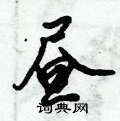 昼
词典网